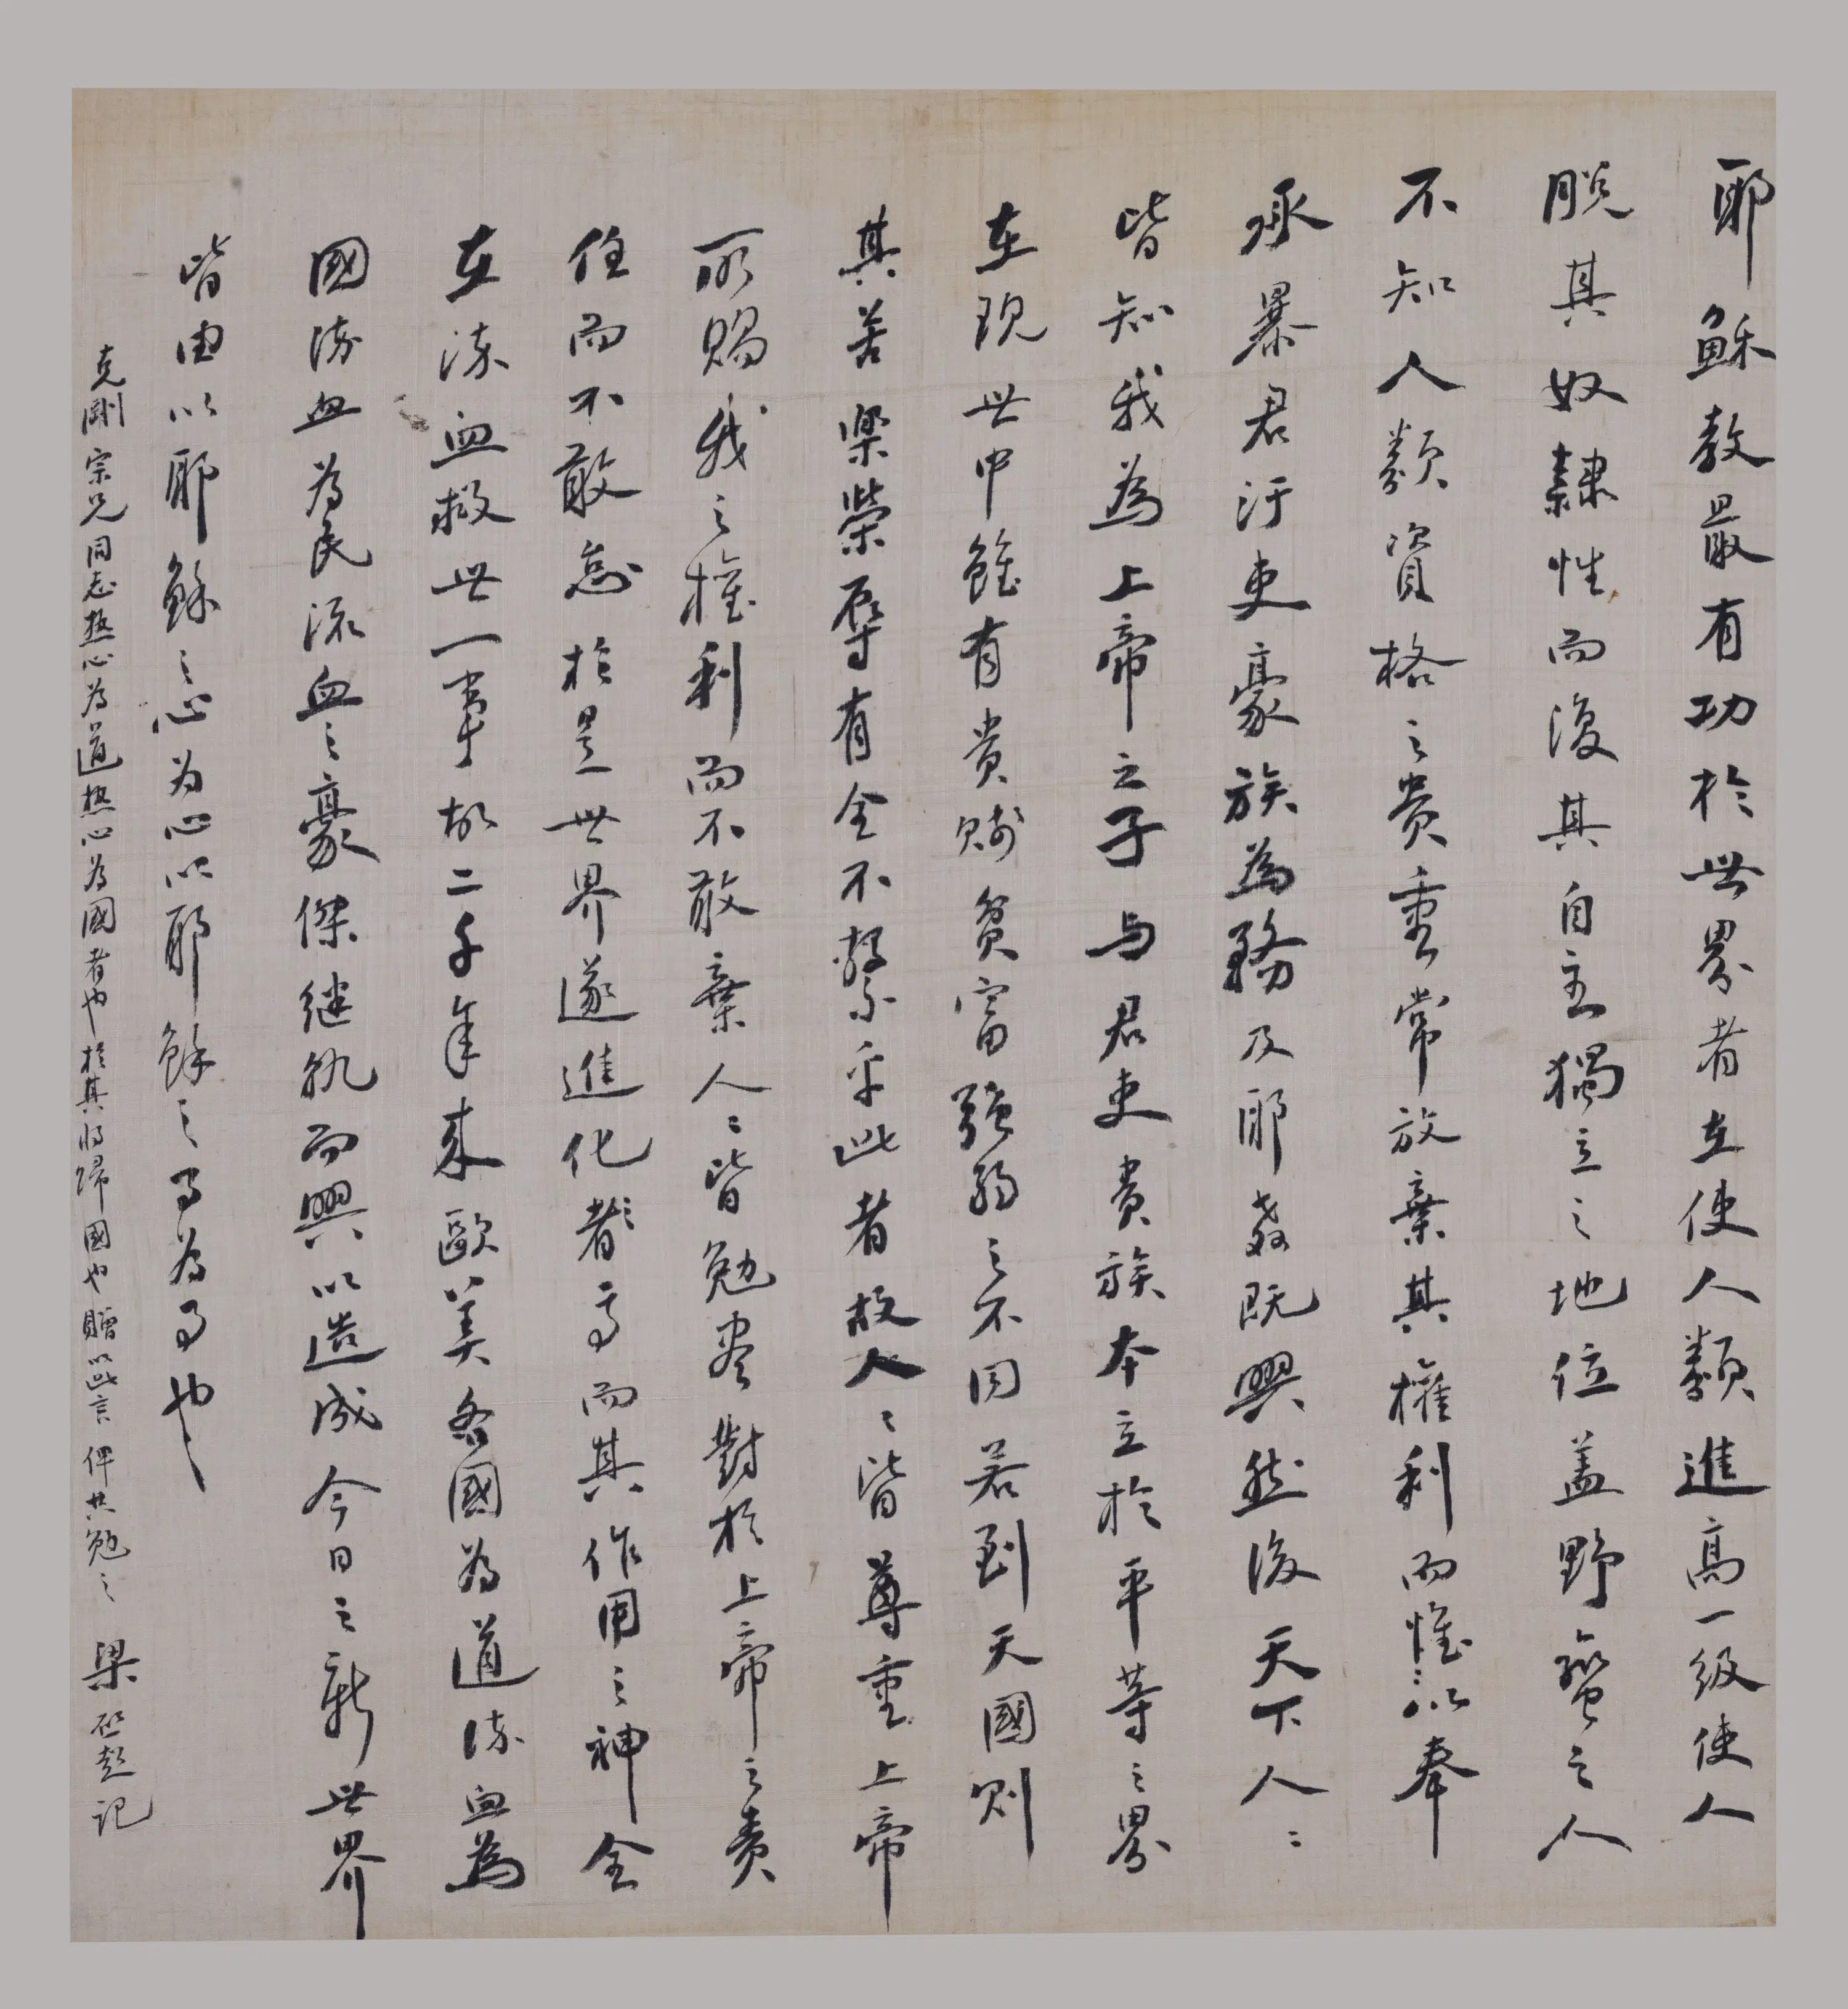 耶穌教最有功於世界者在使人類進高一級使人
脱其奴隸性而復其自主獨立之地位盖野蠻之人
不知人類資格之貴重常放棄其權利而惟以奉
承暴君汙吏豪族為務及耶教既興然後天下人〻
皆知我為上帝之子与君吏貴族本立於平等之界
在現世中雖有貴賤貧富強弱之不同若到天國則
其苦樂榮辱有全不繫乎此者故人〻皆尊重上帝
所賜我之權利而不敢棄人〻皆勉尽對於上帝之責
任而不敢怠於是世界遂進化者〻高而其作用之神全
在流血救世一事故二千年来歐美各國為道流血為
國流血為民流血之豪傑继軌而興以造成今日之新世界
皆由以耶穌之心为心以耶穌之事為事也
克剛宗兄同志熱心為道熱心為國者也於其將歸國也贈以此言俾共勉之 梁啟超記